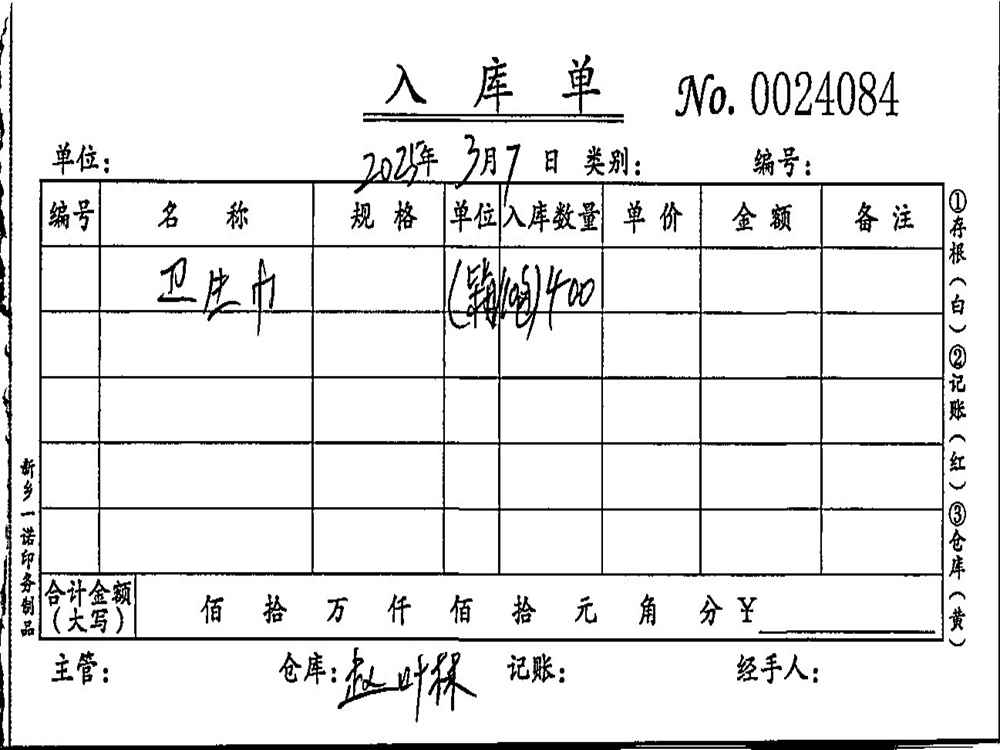 入 库 单 No. 0024084
单位： 2025年 3月7日 类别： 编号：
编号 名 称 规 格 单位 入库数量 单 价 金 额 备 注
卫生巾 400
合计金额（大写） 佰 拾 万 仟 佰 拾 元 角 分 ¥
主管： 仓库： 记账： 经手人：
①存根（白）②记账（红）③仓库（黄）
新乡一诺印务制品